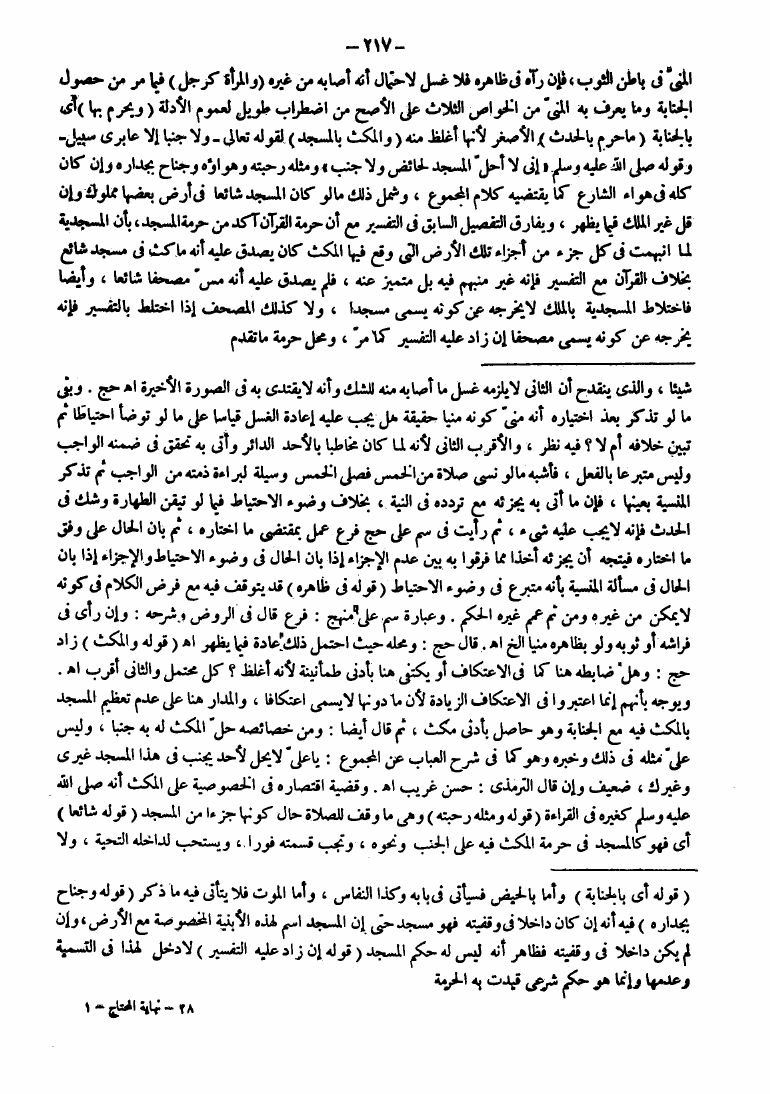 – ٢١٧ –
المنىّ فى باطن الثوب ، فإن رآه فى ظاهره فلا غسل لاحتمال أنه أصابه من غيره (والمرأة كرجل) فيما مر من حصول
الجنابة وما يعرف به المنىّ من الخواص الثلاث على الأصح من اضطراب طويل لعموم الأدلة ( ويحرم بها ) أى
بالجنابة ( ماحرم بالحدث ) الأصغر لأنها أغلظ منه ( والمكث بالمسجد ) لقوله تعالى ـ ولا جنبا إلا عابرى سبيل ـ
وقوله صلى الله عليه وسلم « إنى لا أحلّ المسجد لحائض ولا جنب » ومثله رحبته وهواؤه وجناح بجداره وإن كان
كله فى هواء الشارع كما يقتضيه كلام المجموع ، وشمل ذلك مالو كان المسجد شائعا فى أرض بعضها مملوك وإن
قل غير الملك فيما يظهر ، ويفارق التفصيل السابق فى التفسير مع أن حرمة القرآن آكد من حرمة المسجد ، بأن المسجدية
لما انبهمت فى كل جزء من أجزاء تلك الأرض التى وقع فيها المكث كان يصدق عليه أنه ماكث فى مسجد شائع
بخلاف القرآن مع التفسير فإنه غير منبهم فيه بل متميز عنه ، فلم يصدق عليه أنه مسّ مصحفا شائعا ، وأيضا
فاختلاط المسجدية بالملك لايخرجه عن كونه يسمى مسجدا ، ولا كذلك المصحف إذا اختلط بالتفسير فإنه
يخرجه عن كونه يسمى مصحفا إن زاد عليه التفسير كما مرّ ، ومحل حرمة ماتقدم
شيئا ، والذى ينقدح أن الثانى لايلزمه غسل ما أصابه منه للشك وأنه لايقتدى به فى الصورة الأخيرة اه حج . وبقى
ما لو تذكر بعد اختياره أنه منىّ كونه منيا حقيقة هل يجب عليه إعادة الغسل قياسا على ما لو توضأ احتياطا ثم
تبين خلافه أم لا ؟ فيه نظر ، والأقرب الثانى لأنه لما كان مخاطبا بالأحد الدائر وأتى به تحقق فى ضمنه الواجب
وليس متبرعا بالفعل ، فأشبه مالو نسى صلاة من الخمس فصلى الخمس وسيلة لبراءة ذمته من الواجب ثم تذكر
المنسية بعينها ، فإن ما أتى به يجزئه مع تردده فى النية ، بخلاف وضوء الاحتياط فيما لو تيقن الطهارة وشك فى
الحدث فإنه لايجب عليه شىء ، ثم رأيت فى سم على حج فرع عمل بمقتضى ما اختاره ، ثم بان الحال على وفق
ما اختاره فيتجه أن يجزئه أخذا مما فرقوا به بين عدم الإجزاء إذا بان الحال فى وضوء الاحتياط والإجزاء إذا بان
الحال فى مسألة المنسية بأنه متبرع فى وضوء الاحتياط ( قوله فى ظاهره ) قد يتوقف فيه مع فرض الكلام فى كونه
لايمكن من غيره ومن ثم عمم غيره الحكم . وعبارة سم على منهج : فرع قال فى الروض وشرحه : وإن رأى فى
فراشه أو ثوبه ولو بظاهره منيا الخ اه . قال حج : ومحله حيث احتمل ذلك عادة فيما يظهر اه ( قوله والمكث ) زاد
حج : وهل ضابطه هنا كما فى الاعتكاف أو يكتفى هنا بأدنى طمأنينة لأنه أغلظ ؟ كل محتمل والثانى أقرب اه .
ويوجه بأنهم إنما اعتبروا فى الاعتكاف الزيادة لأن ما دونها لايسمى اعتكافا ، والمدار هنا على عدم تعظيم المسجد
بالمكث فيه مع الجنابة وهو حاصل بأدنى مكث ، ثم قال أيضا : ومن خصائصه حلّ المكث له به جنبا ، وليس
علىّ مثله فى ذلك وخبره وهو كما فى شرح العباب عن المجموع : ياعلىّ لايحل لأحد يجنب فى هذا المسجد غيرى
وغيرك ، ضعيف وإن قال الترمذى : حسن غريب اه . وقضية اقتصاره فى الخصوصية على المكث أنه صلى الله
عليه وسلم كغيره فى القراءة ( قوله ومثله رحبته ) وهى ما وقف للصلاة حال كونها جزءا من المسجد ( قوله شائعا )
أى فهو كالمسجد فى حرمة المكث فيه على الجنب ونحوه ، وتجب قسمته فورا ، ويستحب لداخله التحية ، ولا
( قوله أى بالجنابة ) وأما بالحيض فسيأتى فى بابه وكذا النفاس ، وأما الموت فلا يتأتى فيه ما ذكر ( قوله وجناح
بجداره ) فيه أنه إن كان داخلا فى وقفيته فهو مسجد حتى إن المسجد اسم لهذه الأبنية المخصوصة مع الأرض ، وإن
لم يكن داخلا فى وقفيته فظاهر أنه ليس له حكم المسجد ( قوله إن زاد عليه التفسير ) لادخل لهذا فى التسمية
وعدمها وإنما هو حكم شرعى قيدت به الحرمة
٢٨ – نهاية المحتاج – ١